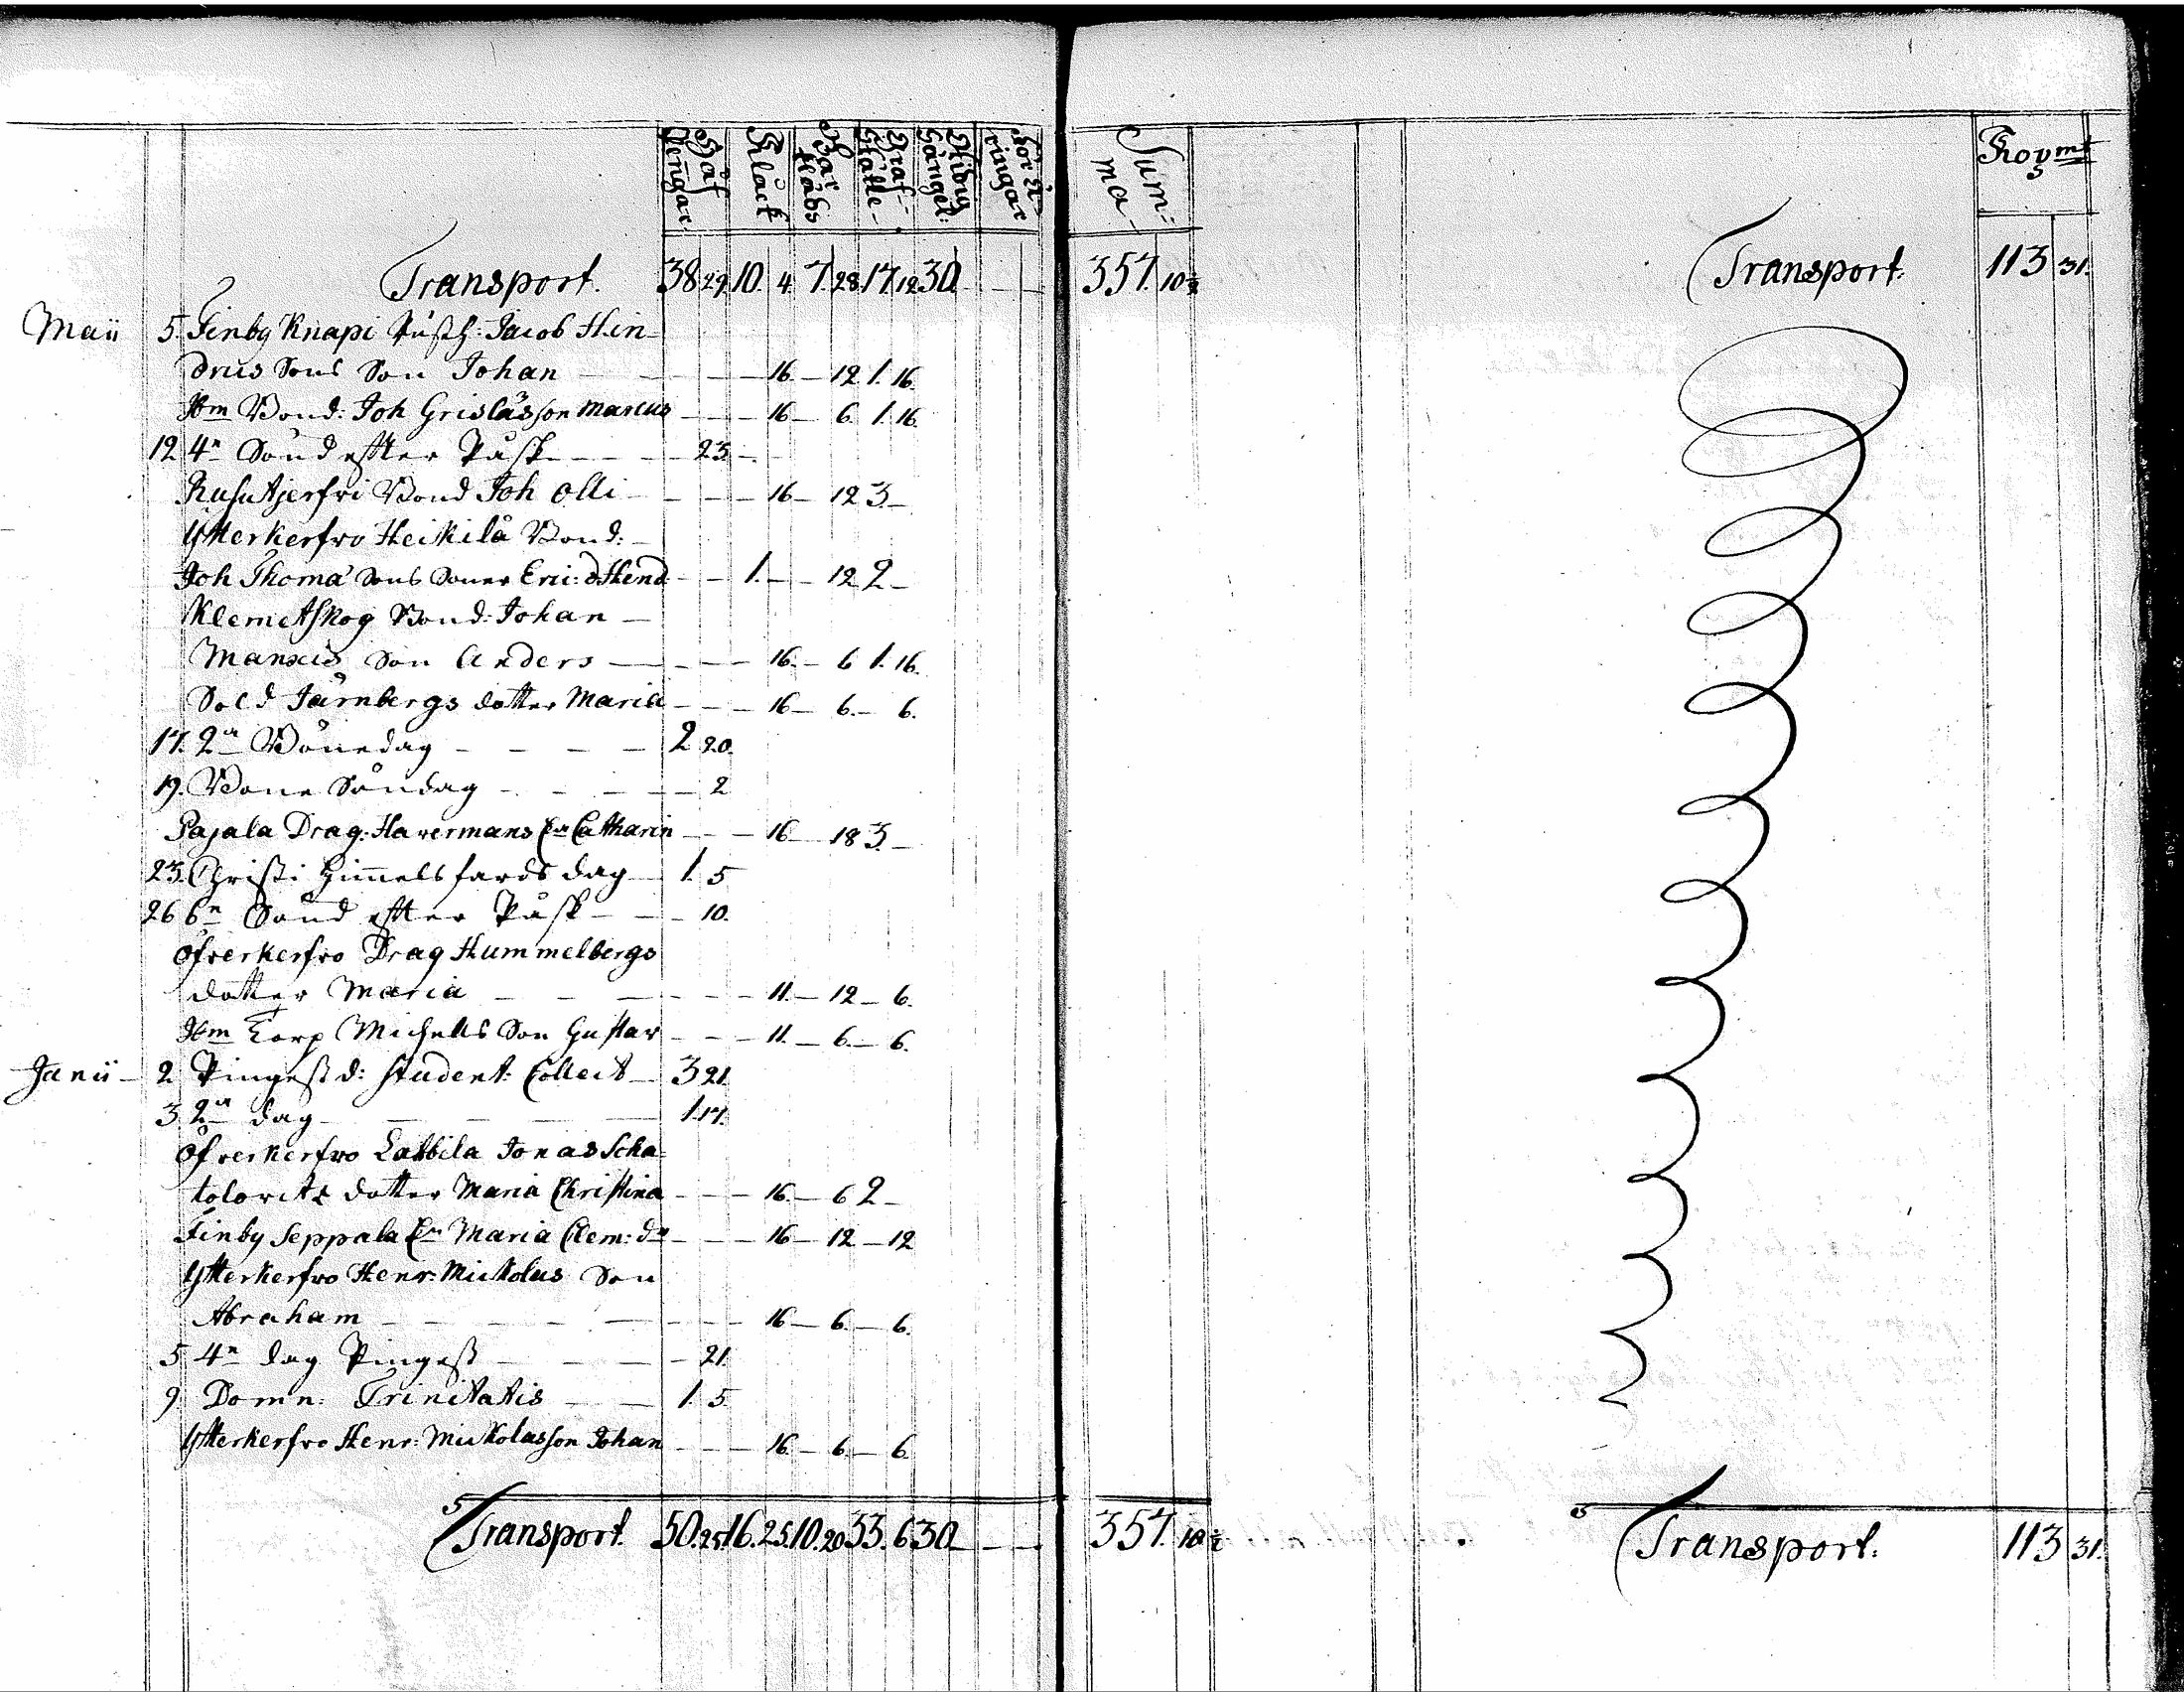 Håf Pengar Klåck Bår kläds Graf- ställe- Midig Gånget: För ä- ringar Sum: ma Koymt
Transport. 38 29 10. 4. 7. 28 17 12 30 — — 357. 10½ Transport. 113 31.
Maii 5. Finby Knapi Jacob Hin-
drics Sons Son Johan — — — 16. — 12 1. 16.
Ibm Bond: Joh Grislåsson Marcus — — — 16 — 6. 1. 16.
12 4n Sönd efter Påsk — — — 23 —
Rusutjerfvi Bond Joh Olli — — — — 16 — 12 3. —
Ytterkerfvo Heikilä Bond: —
Joh Thomæ Sons Söner Eric: o Hend — — 1. — — 12 2 —
Klemetskog Bond: Johan —
Son Anders — — — — 16. — 6 1. 16.
Sold Järnbergs dotter Maria — — — 16 — 6. — 6.
17. 2n Bönedag — — — — 2 20.
19. Böne Söndag — — — — — 2
Pajala Drag: Havermans En Catharin — — — 16 — 18 3. —
23. Christi Himmelsfärds dag — 1. 5
26 6n Sönd efter Påsk — — — 10.
Öfverkerfvo Drag Hummelbergs
dotter Maria — — — — — — 11. — 12 — 6.
Ibm Torp Michels Son Gustav — — — 11. — 6. — 6.
Junii — 2 Pingest d: Student: Collect — 3 21.
3 2n dag — — — — 1. 17.
Öfverkerfvo Labbila Jonas Scha-
dotter Maria Christina — — — 16. — 6 2 —
Finby Seppala En Maria Clem: dr — — — 16 — 12 — 12
Ytterkerfvo Henr: Mickolus Son
Abraham — — — — — — — 16 — 6. — 6.
5 4n dag Pingest — — — — 21.
9 Domn: Trinitatis — — 1. 5
Ytterkerfvo Henr: Mickolusson Johan — — — 16 — 6. — 6.
Transport. 50. 25. 16. 25. 10. 20 33. 6 30. — — 357. 10½ Transport. 113 31.